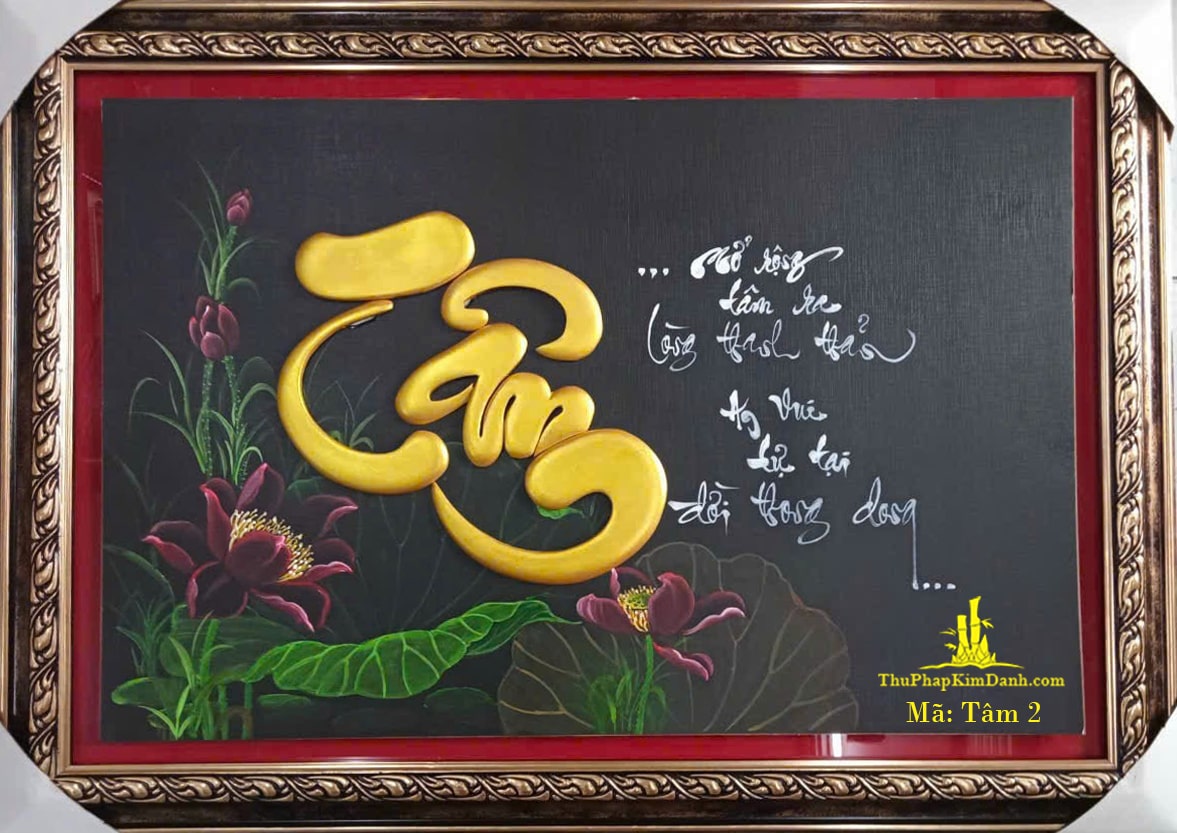 Tâm
... Mở rộng
tâm ra
lòng thanh thản
An vui
tự tại
đời thong dong...
ThuPhapKimDanh.com
Mã: Tâm 2